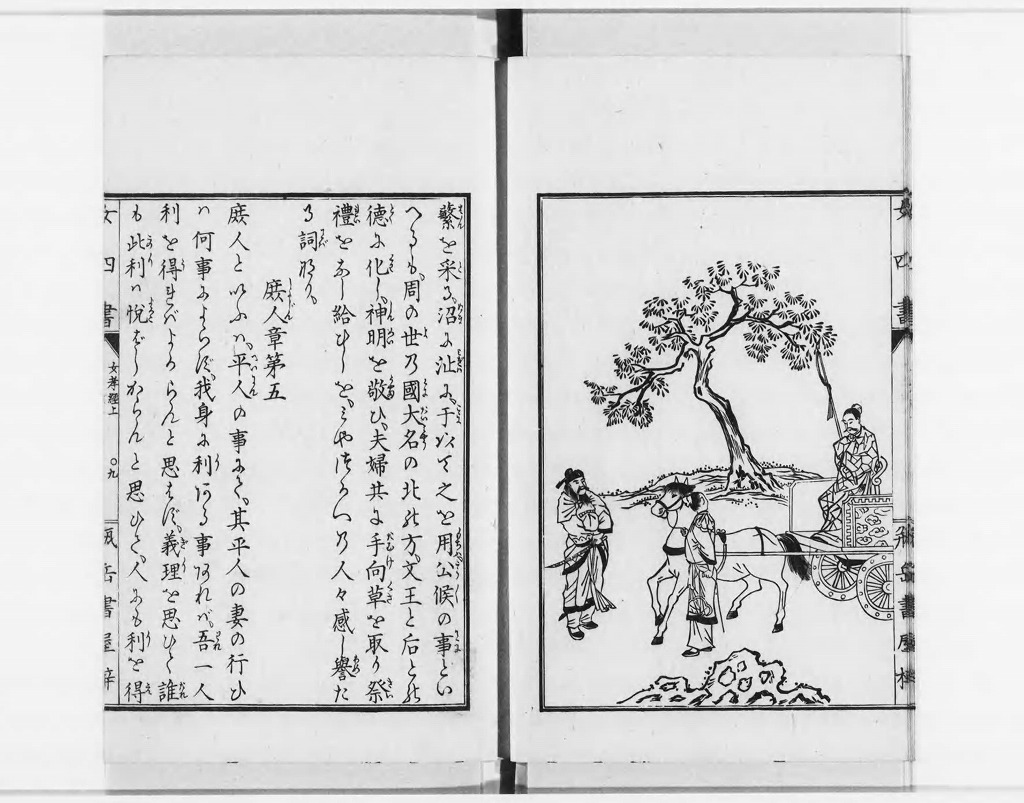 女四書
蘩を采る、沼に沚に、于以て之を用公候の事とい
へるも、周の世乃國大名の北の方、文王と后との
德に化し、神明を敬ひ、夫婦共に手向草を取り祭
禮をなし給ひしを、の人々感し譽た
る詞なり、
庶人章第五
庶人といふハ、平人の事にて、其平人の妻の行ひ
ハ何事によらず、我身に利ある事あれバ、吾一人
利を得ればよからんと思はず、義理を思ひて誰
も此利ハ悦ばしからんと思ひて、人にも利を得
女四書
女孝經上
〇九
書屋梓